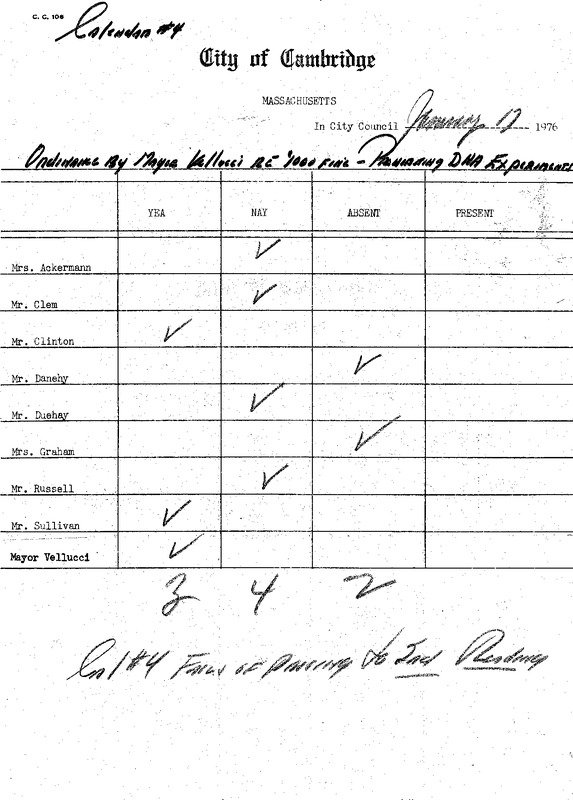 C. C. 106
Calendar #4
City of Cambridge
MASSACHUSETTS
In City Council January 17 1976
Ordinance By Mayor Vellucci RE 1000 Fine - Prohibiting DNA Experiments
YEA NAY ABSENT PRESENT
Mrs. Ackermann ✓
Mr. Clem ✓
Mr. Clinton ✓
Mr. Danehy ✓
Mr. Duehay ✓
Mrs. Graham ✓
Mr. Russell ✓
Mr. Sullivan ✓
Mayor Vellucci ✓
3 4 2
Cal #4 Fails of passing to 2nd Reading